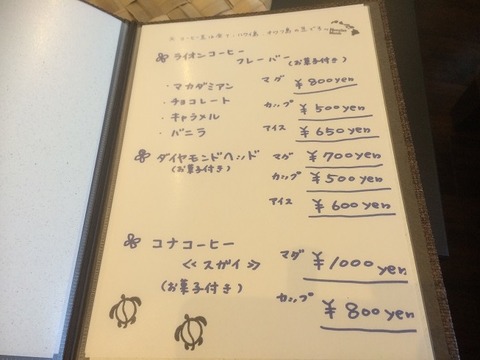 ライオンコーヒー
フレーバー(お菓子付き)
・マカダミアン マグ ¥800yen
・チョコレート カップ ¥500yen
・キャラメル アイス ¥650yen
・バニラ
ダイヤモンドヘッド マグ ¥700yen
(お菓子付き) カップ ¥500yen
アイス ¥600yen
コナコーヒー マグ ¥1000yen
≪スガイ≫
(お菓子付き) カップ ¥800yen